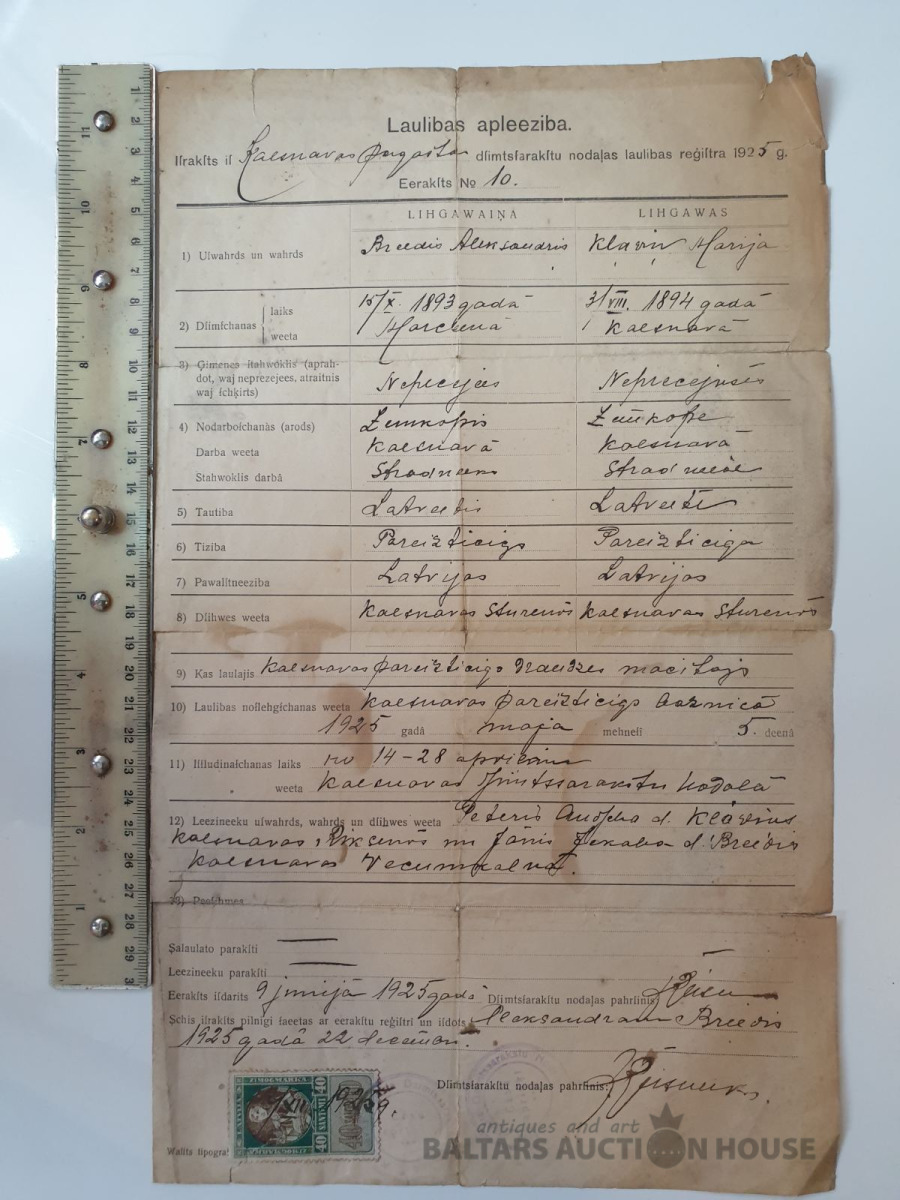 Laulibas apleeziba.
Iſrakſts iſ Kalsnavas pagasta dſimtsſarakſtu nodaļas laulibas reģiſtra 1925 g.
Eerakſts № 10.
LIHGAWAIŅA LIHGAWAS
1) Uſwahrds un wahrds Breedis Aleksandris Klaviņ Marija
2) Dſimſchanas laiks 15/X. 1893 gadā 31/VIII. 1894 gadā
weeta Marcienā Kalsnavā
3) Ģimenes ſtahwoklis (aprah-
dot, waj neprezejees, atraitnis
waj ſchķirts) Neprecejees Neprecejusēs
4) Nodarboſchanàs (arods) Zemkopis Zemkope
Darba weeta Kalsnavā Kalsnavā
Stahwoklis darbâ Stradneeks Stradneece
5) Tautiba Latveetis Latveete
6) Tiziba Pareizticigs Pareizticiga
7) Pawalſtneeziba Latvijas Latvijas
8) Dſihwes weeta Kalsnavas Kalsnavas
9) Kas laulajis Kalsnavas pareizticigo draudzes macitajs
10) Laulibas noſlehgſchanas weeta Kalsnavas pareizticigo baznicā
1925 gadâ maja mehneſî 5. deenâ
11) Iſſludinaſchanas laiks no 14–28 aprilim
weeta Kalsnavas Dzimtssarakstu nodaļā
12) Leezineeku uſwahrds, wahrds un dſihwes weeta Peteris d. Klaviņs
Kalsnavas un Jānis Jekaba d. Breedis
Kalsnavas Vecumkalnā.
13) Peeſihmes
Salaulato parakſti —
Leezineeku parakſti —
Eerakſts iſdarits 9 junijā 1925 gadā Dſimtsſarakſtu nodaļas pahrſinis
Schis iſrakſts pilnigi ſaeetas ar eerakſtu reģiſtrî un iſdots Aleksandram Breedis
1925 gadā 22 decembrī.
Dſimtsſarakſtu nodaļas pahrſinis:
ZIMOGMARKA
40 SANTIMU 40
XII 1925 g.
Walſts tipograf
antiques and art
BALTARS AUCTION HOUSE